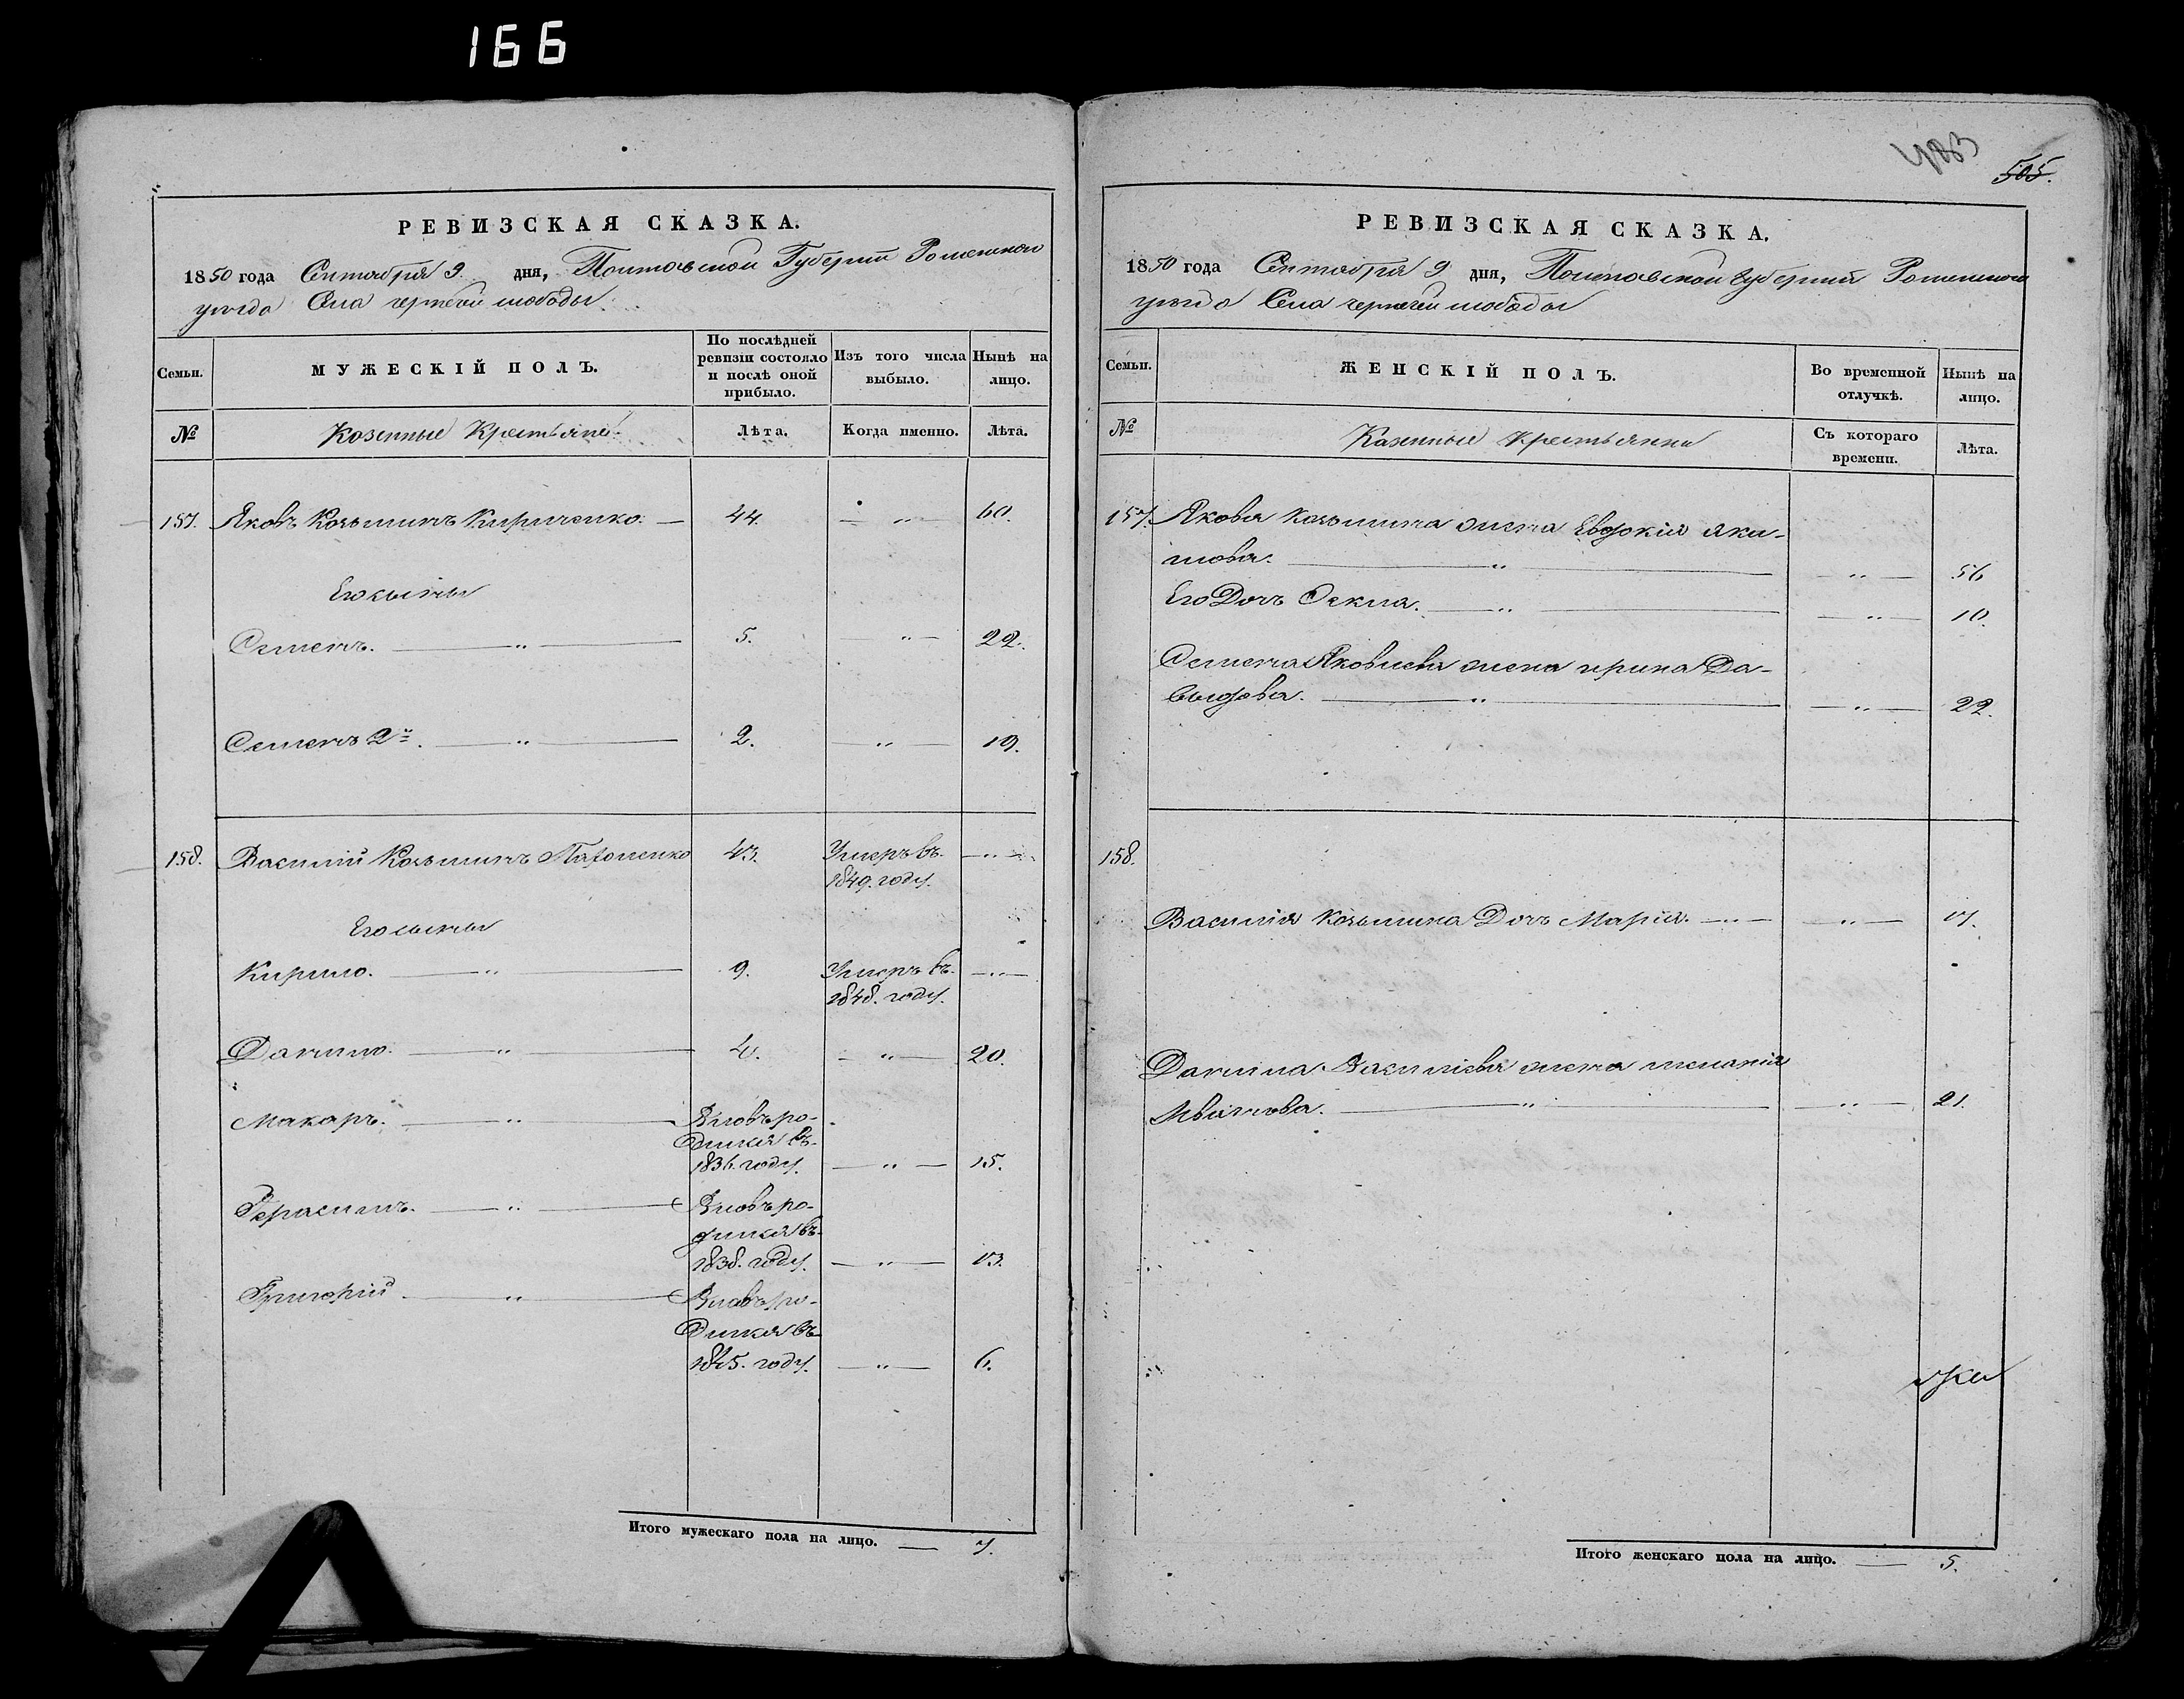 166
РЕВИЗСКАЯ СКАЗКА.
1850 года Сентября 9 дня, Полтавской Губернии Роменского
уезда Села чернечи слободы
Семьи.
МУЖЕСКІЙ ПОЛЪ.
По послѣдней ревизіи состояло и послѣ оной прибыло.
Изъ того числа выбыло.
Нынѣ на лицо.
№
Козенные Крестьяне
Лѣта.
Когда именно.
Лѣта.
157. Яковъ Козьминъ Кириченко. — 44. — „ — 60.
Его сыны
Семенъ. — „ — 5. — „ — 22.
Семенъ 2й. — „ — 2. — „ — 19.
158. Василій Козьминъ Пахоменко 43. Умеръ въ — „ —
1849. году.
Его сыны
Кирило. — „ — 9. Умеръ въ — „ —
1848. году.
Данило. — „ — 4. — „ — 20.
Макаръ. — „ — Вновъ ро-
дился въ
1836. году. — „ — 15.
Герасимъ. — „ — Вновъ ро-
дился въ
1838. году. — „ — 13.
Григорій — „ — Вновъ ро-
дился въ
1845. году. — „ — 6.
Итого мужескаго пола на лицо. — 7.
483
505.
РЕВИЗСКАЯ СКАЗКА.
1850 года Сентября 9 дня, Полтавской Губернии Роменского
уезда Села чернечи слободы
Семьи.
ЖЕНСКІЙ ПОЛЪ.
Во временной отлучкѣ.
Нынѣ на лицо.
№
Казенные Крестьянки
Съ котораго времени.
Лѣта.
157. Якова Козьмина жена Евдокія Яки-
мова. — „ — — „ — 56
Его Дочъ Фекла. — „ — — „ — 10.
Семена Яковлева жена ирина Да-
выдова. — „ — — „ — 22.
158.
Василія Козьмина Дочъ Марія. — „ — — „ — 17.
Данила Василіева жена меланія
Иванова. — „ — — „ — 21.
Итого женскаго пола на лицо. — 5.